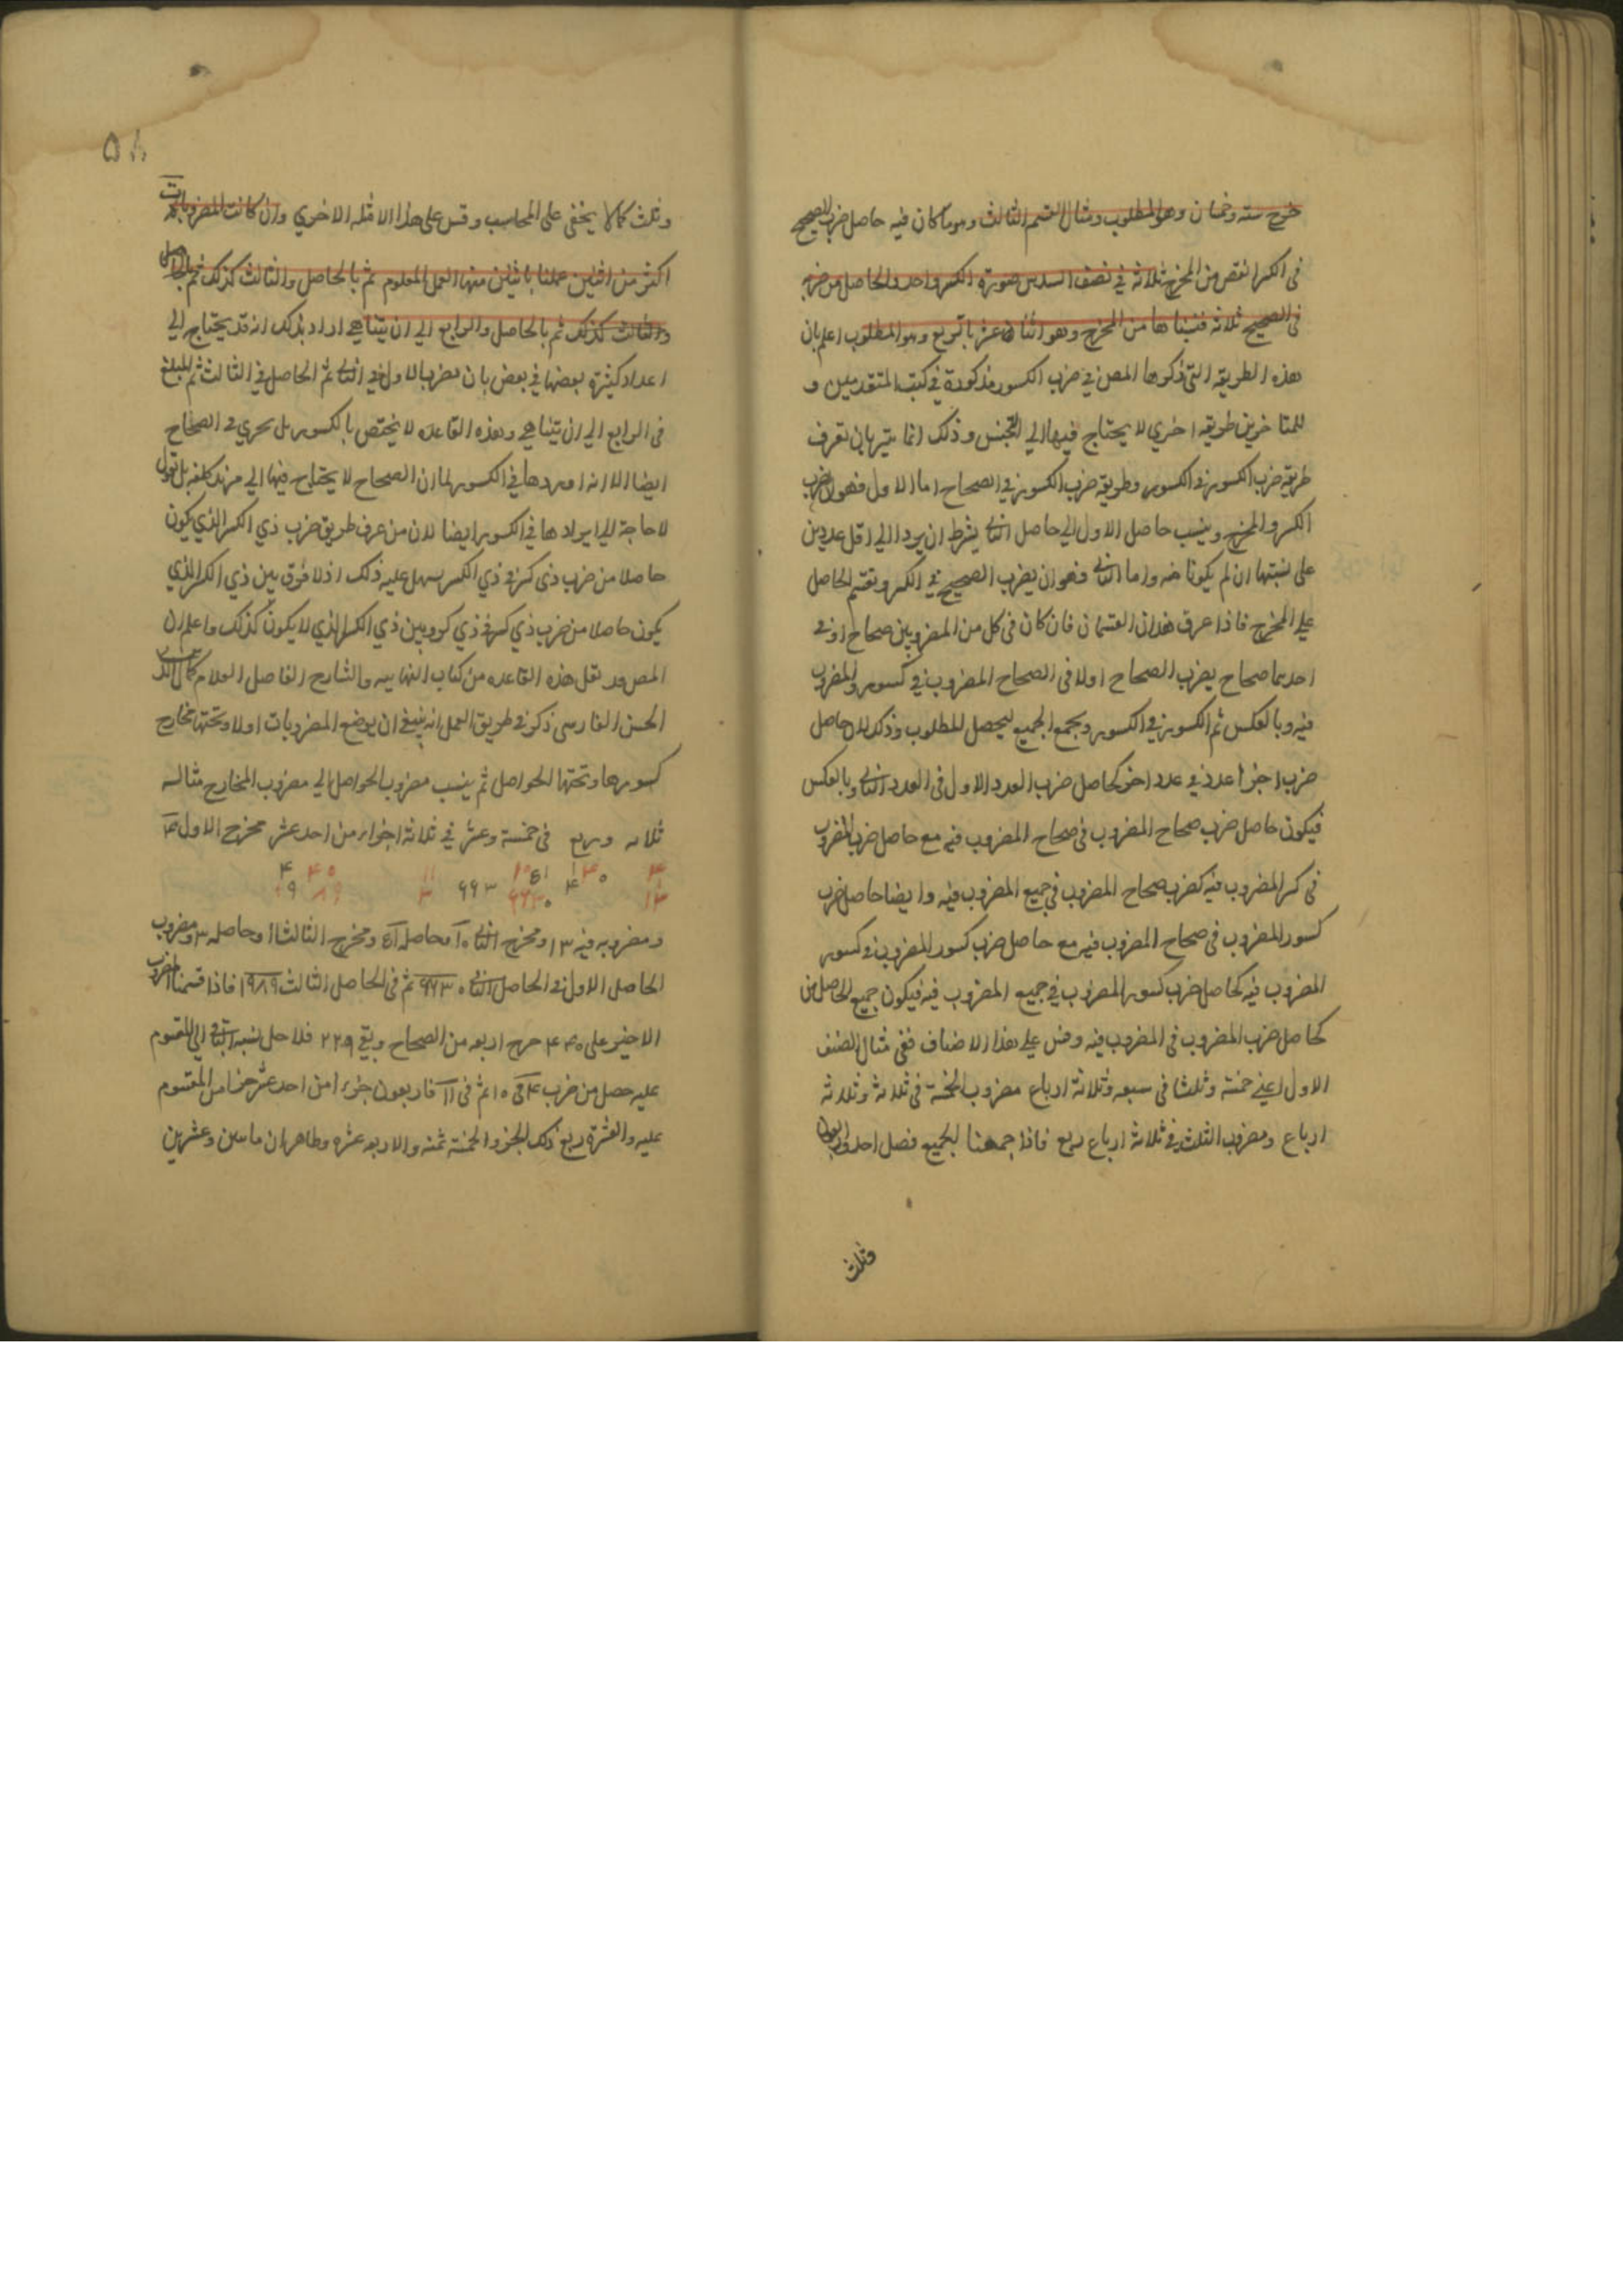 خرج ستة وخمسان وهو المطلوب ومثال القسم الثالث وهو ما كان فيه حاصل ضرب الصحيح
فى الكسر انقص من المخرج ثلاثة في نصف السدس صورة الكسر واحد والحاصل من ضربه
فى الصحيح ثلاثة فنسبناها من المخرج وهو اثنا عشر بالربع وهو المطلوب اعلم بان
هذه الطريقه التى ذكرها المصن في ضرب الكسور مذكورة في كتب المتقدمين و
للمتاخرين طريقه اخري لا يحتاج فيها الي التجنس وذلك انما يتم بان تعرف
طريقه ضرب الكسور في الكسور وطريقه ضرب الكسور في الصحاح اما الاول فهو ان يضرب
الكسر والمخرج وينسب حاصل الاول الي حاصل الثانى بشرط ان يرد الي اقل عددين
على نسبتهما ان لم يكونا منه واما الثانى فهو ان يضرب الصحيح في الكسر ويقسم الحاصل
على المخرج فاذا عرف هذان القسمان فان كان فى كل من المضروبين صحاح او فى
احدهما صحاح يضرب الصحاح اولا فى الصحاح المضروب في كسور المضروب
فيه وبالعكس ثم الكسور في الكسور ويجمع الجميع ليحصل المطلوب وذلك لان حاصل
ضرب اجزا عدد في عدد اخر كحاصل ضرب العدد الاول فى العدد الثانى وبالعكس
فيكون حاصل ضرب صحاح المضروب فى صحاح المضروب فيه مع حاصل ضرب المضروب
فى كسر المضروب فيه كضرب صحاح المضروب في جميع المضروب فيه وايضا حاصل ضرب
كسور المضروب فى صحاح المضروب فيه مع حاصل ضرب كسور المضروب في كسور
المضروب فيه كحاصل ضرب كسور المضروب في جميع المضروب فيه فيكون جميع الحاصل من
كحاصل ضرب المضروب فى المضروب فيه وقس على هذا الاصناف ففي مثال الصنف
الاول اعني خمسة وثلثا فى سبعه وثلاثة ارباع مضروب الخمسة فى ثلاثة وثلاثة
ارباع ومضروب الثلث في ثلاثة ارباع ربع فاذا جمعنا الجميع فصل احد واربعون
وثلث
٥٨
وثلث كما لا يخفى على المحاسب وقس على هذا الامثلة الاخري وان كانت المضروبات
اكثر من اثنين عملنا باثنين منها العمل المعلوم ثم بالحاصل والثالث كذلك ثم بالحاصل
والثالث كذلك ثم بالحاصل والرابع الي ان يتناهي اراد بذلك انه قد يحتاج الي
اعداد كثيرة بعضها في بعض بان يضرب الاول في الثانى ثم الحاصل في الثالث ثم المبلغ
فى الرابع الي ان يتناهي وهذه القاعده لا يختص بالكسور بل يجري فى الصحاح
ايضا الا انه اوردها في الكسور لما ان الصحاح لا يحتاج فيها الي مزيد كلفه بل نقول
لا حاجة الي ايرادها في الكسور ايضا لان من عرف طريق ضرب ذي الكسر الذي يكون
حاصلا من ضرب ذى كسر في ذي الكسر سهل عليه ذلك اذ لا فرق بين ذي الكسر الذي
يكون حاصلا من ضرب ذي كسر في ذي كسر وبين ذي الكسر الذي لا يكون كذلك واعلم ان
المص قد نقل هذه القاعده من كتاب البهاييه والشارح الفاضل العلامة كمال الدين
الحسن الفارسى ذكر في طريق العمل انه ينبغي ان يوضع المضروبات اولا وتحتها مخارج
كسورها وتحتها الحواصل ثم ينسب مضروب الحواصل الي مضروب المخارج مثاله
ثلاثه وربع فى خمسة وعشر في ثلاثة اجزاء من احد عشر مخرج الاول ۴
ومضروبه فيه ١٣ ومخرج الثانى ١٠ وحاصله ٥١ ومخرج الثالث ١١ وحاصله ٣ ومضروب
الحاصل الاول في الحاصل الثانى ٦٦٣ ثم فى الحاصل الثالث ١٩٨٩ فاذا قسمنا المضروب
الاخير على ۴۴٠ خرج اربعه من الصحاح وبقي ٢٢٩ فلاجل نسبة الباقي الي المقسوم
عليه حصل من ضرب ۴ في ١٠ ثم فى ١١ فاربعون جزءا من احد عشر جزا من المقسوم
عليه والعشرة ربع ذلك الجزو والخمسة ثمنه والاربعه عشره وظاهر ان مايتين وعشرين